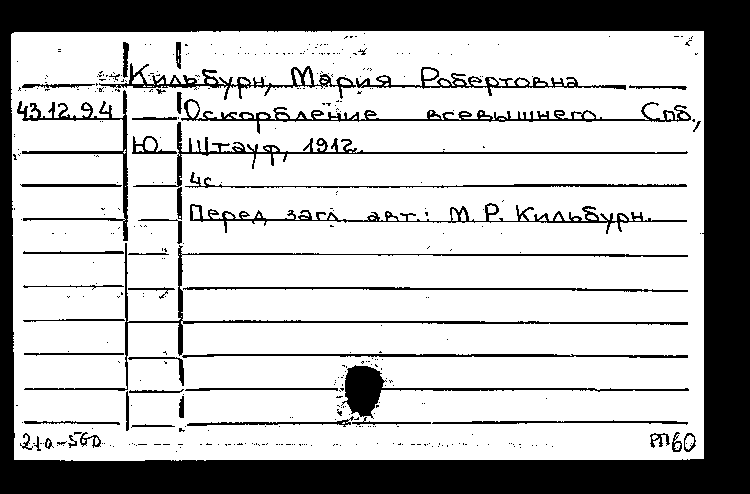 Кильбурн, Мария Робертовна
43.12.9.4 Оскорбление всевышнего. Спб.,
Ю. Штауф, 1912.
4с.
Перед загл. авт.: М. Р. Кильбурн.
РП60